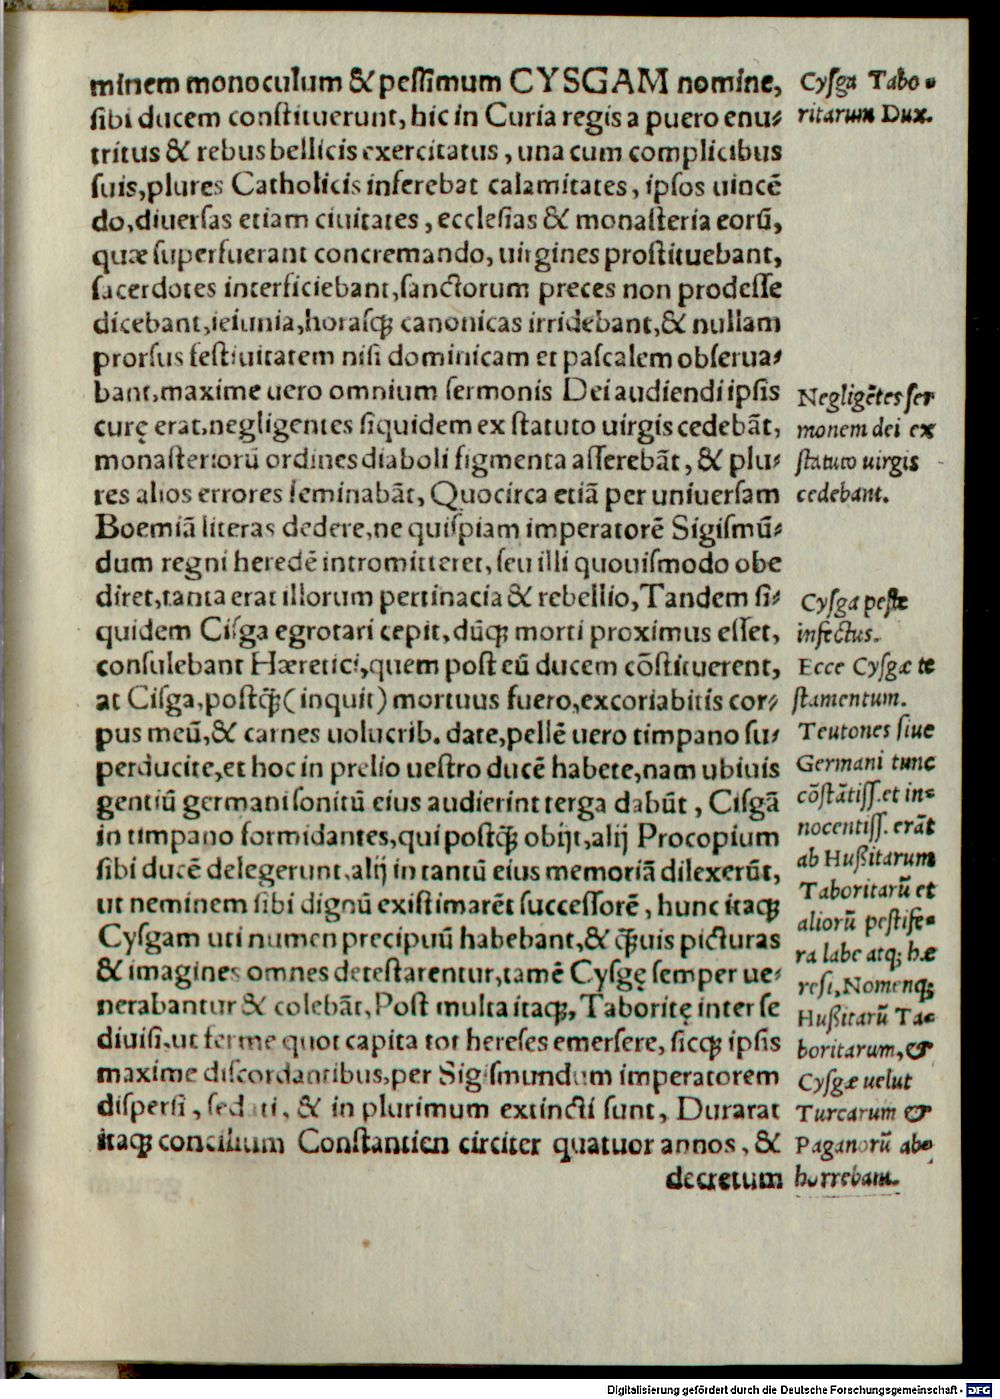 minem monoculum & peſſimum CYSGAM nomine,
ſibi ducem conſtituerunt, hic in Curia regis a puero enu⸗
tritus & rebus bellicis exercitatus, una cum complicibus
ſuis, plures Catholicis inferebat calamitates, ipſos uincē
do, diuerſas etiam ciuitates, eccleſias & monaſteria eorū,
quæ ſuperfuerant concremando, uirgines proſtituebant,
ſacerdotes interficiebant, ſanctorum preces non prodeſſe
dicebant, ieiunia, horaſꝗ canonicas irridebant, & nullam
prorſus feſtiuitatem niſi dominicam et paſcalem obſerua⸗
bant, maxime uero omnium ſermonis Dei audiendi ipſis
curę erat, negligentes ſiquidem ex ſtatuto uirgis cedebāt,
monaſteriorū ordines diaboli figmenta aſſerebāt, & plu⸗
res alios errores ſeminabāt, Quocirca etiā per uniuerſam
Boemiā literas dedere, ne quiſpiam imperatorē Sigiſmū⸗
dum regni heredē intromitteret, ſeu illi quouiſmodo obe
diret, tanta erat illorum pertinacia & rebellio, Tandem ſi⸗
quidem Ciſga egrotari cepit, dūꝗ morti proximus eſſet,
conſulebant Hæretici, quem poſt eū ducem cōſtituerent,
at Ciſga, poſtꝙ̃ (inquit) mortuus fuero, excoriabitis cor⸗
pus meū, & carnes uolucrib. date, pellē uero timpano ſu⸗
perducite, et hoc in prelio ueſtro ducē habete, nam ubiuis
gentiū germani ſonitū eius audierint terga dabūt, Ciſgā
in timpano formidantes, qui poſtꝙ̃ obijt, alij Procopium
ſibi ducē delegerunt, alij in tantū eius memoriā dilexerūt,
ut neminem ſibi dignū exiſtimarēt ſucceſſorē, hunc itaꝗ
Cyſgam uti numen precipuū habebant, & ꝙ̃uis picturas
& imagines omnes deteſtarentur, tamē Cyſgę ſemper ue⸗
nerabantur & colebāt, Poſt multa itaꝗ, Taboritę inter ſe
diuiſi, ut ferme quot capita tot hereſes emerſere, ſicꝗ ipſis
maxime diſcordantibus, per Sigiſmundum imperatorem
diſperſi, & in plurimum extincti ſunt, Durarat
itaꝗ concilium Conſtantien circiter quatuor annos, &
decretum
Cyſga Tabo⸗
ritarum Dux.
Negligētes ſer
monem dei ex
ſtatuto uirgis
cedebant.
Cyſga peſte
infectus.
Ecce Cyſgæ te
ſtamentum.
Teutones ſiue
Germani tunc
cōſtātiſſ. et in⸗
nocentiſſ. erāt
ab Hußitarum
Taboritarū et
aliorū peſtife⸗
ra labe atq; hæ
reſi, Nomenq;
Hußitarū Ta⸗
boritarum, &
Cyſgæ uelut
Turcarum &
Paganorū abo
horrebant.
Digitalisierung gefördert durch die Deutsche Forschungsgemeinschaft - DFG